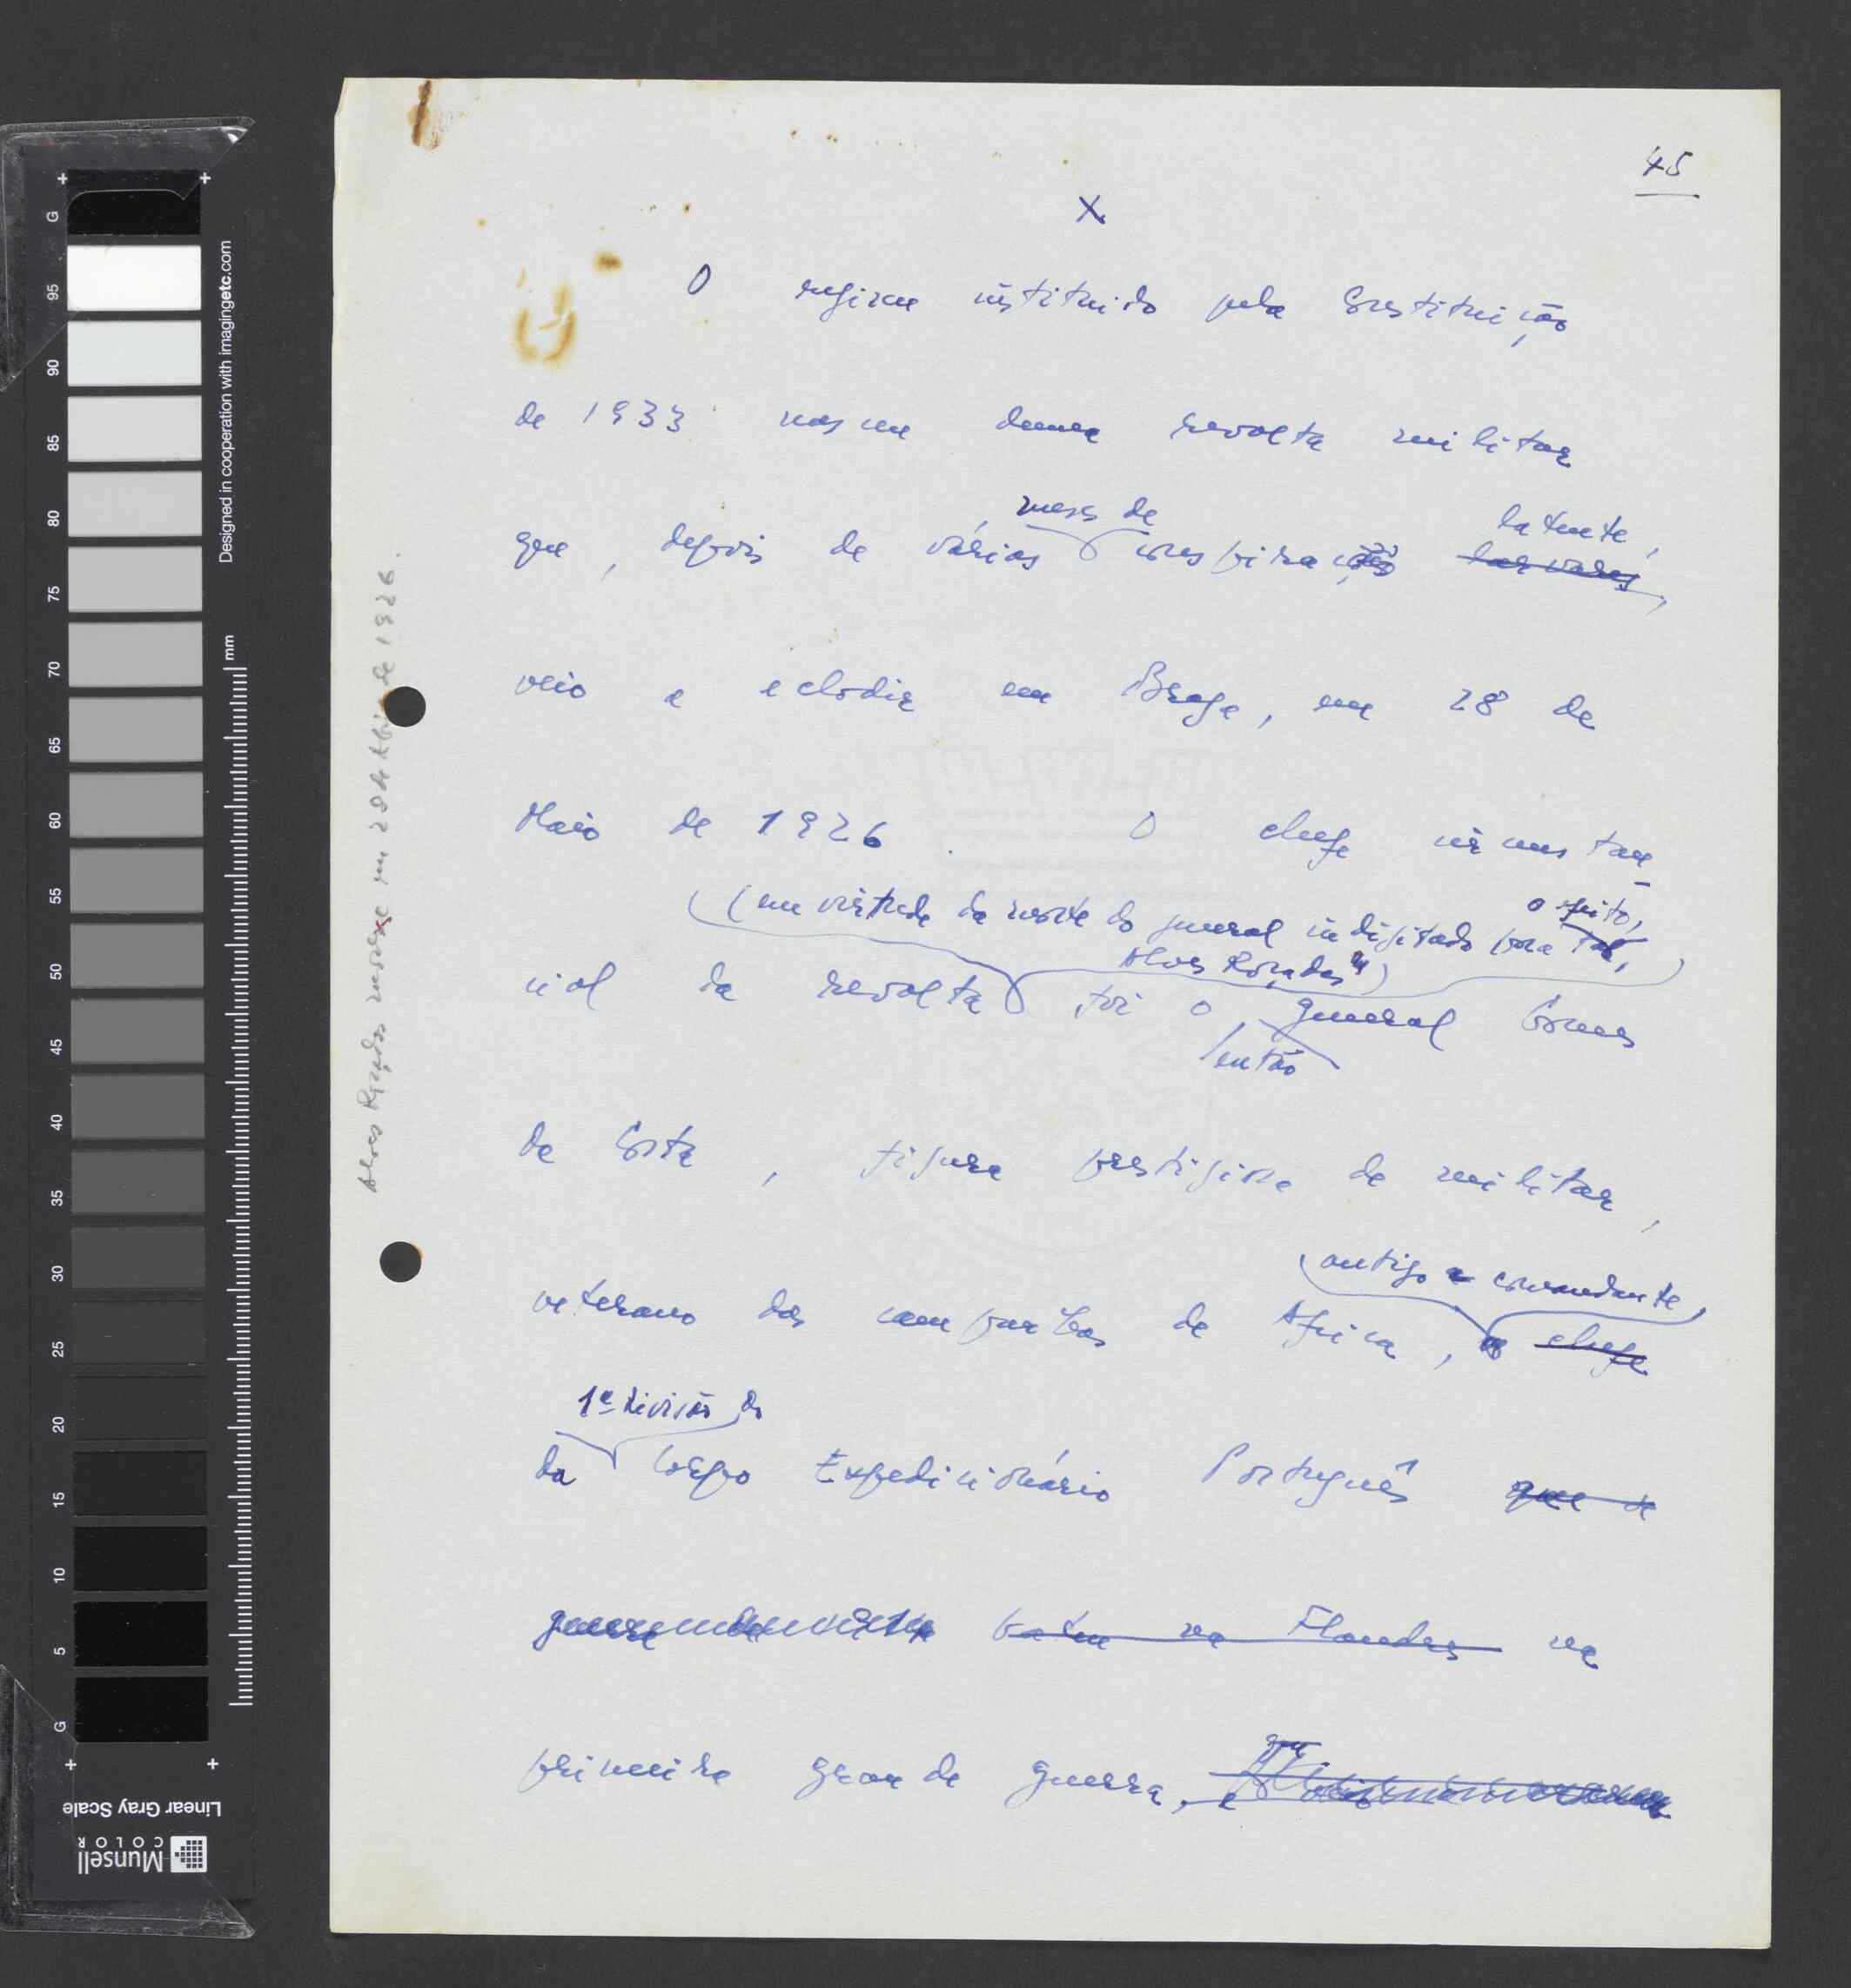 45
X
O regime instituido pela Constituição
de 1933 nasceu duma revolta militar
meses de latente,
que, depois de várias conspiração larvares,
veio a eclodir em Braga, em 28 de
Maio de 1926. O chefe circunstan-
(em virtude da morte do general indigitado para tal, o efeito,
Alves Roçadas)
cial da revolta foi o general Gomes
então
da Costa, figura prestigiosa de militar,
antigo comandante,
veterano das campanhas de Africa, chefe
1ª divisão do
da Corpo Expedicionário Português que se
bateu na Flandres na
primeira grande guerra, e
Alves Roçadas morre em 28 de Abril de 1926.
Designed in cooperation with imagingetc.com
mm
G
95
90
85
80
75
70
65
60
55
50
45
40
35
30
25
20
15
10
5
G
Linear Gray Scale
Munsell
COLOR